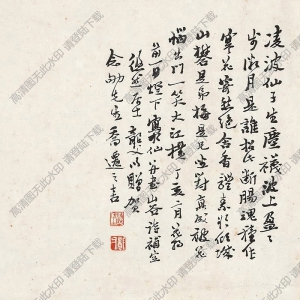 凌波仙子生塵襪波上盈々
步微月是誰招此斷腸魂種作
寒花寄愁絶含香體素欲傾城
山礬是弟梅是兄坐對真成被花
惱出門一笑大江横丁亥二月花朝
前一日燈下寫水仙并書山谷詩補空
居士以贈賀
念劬先生喬遷之吉